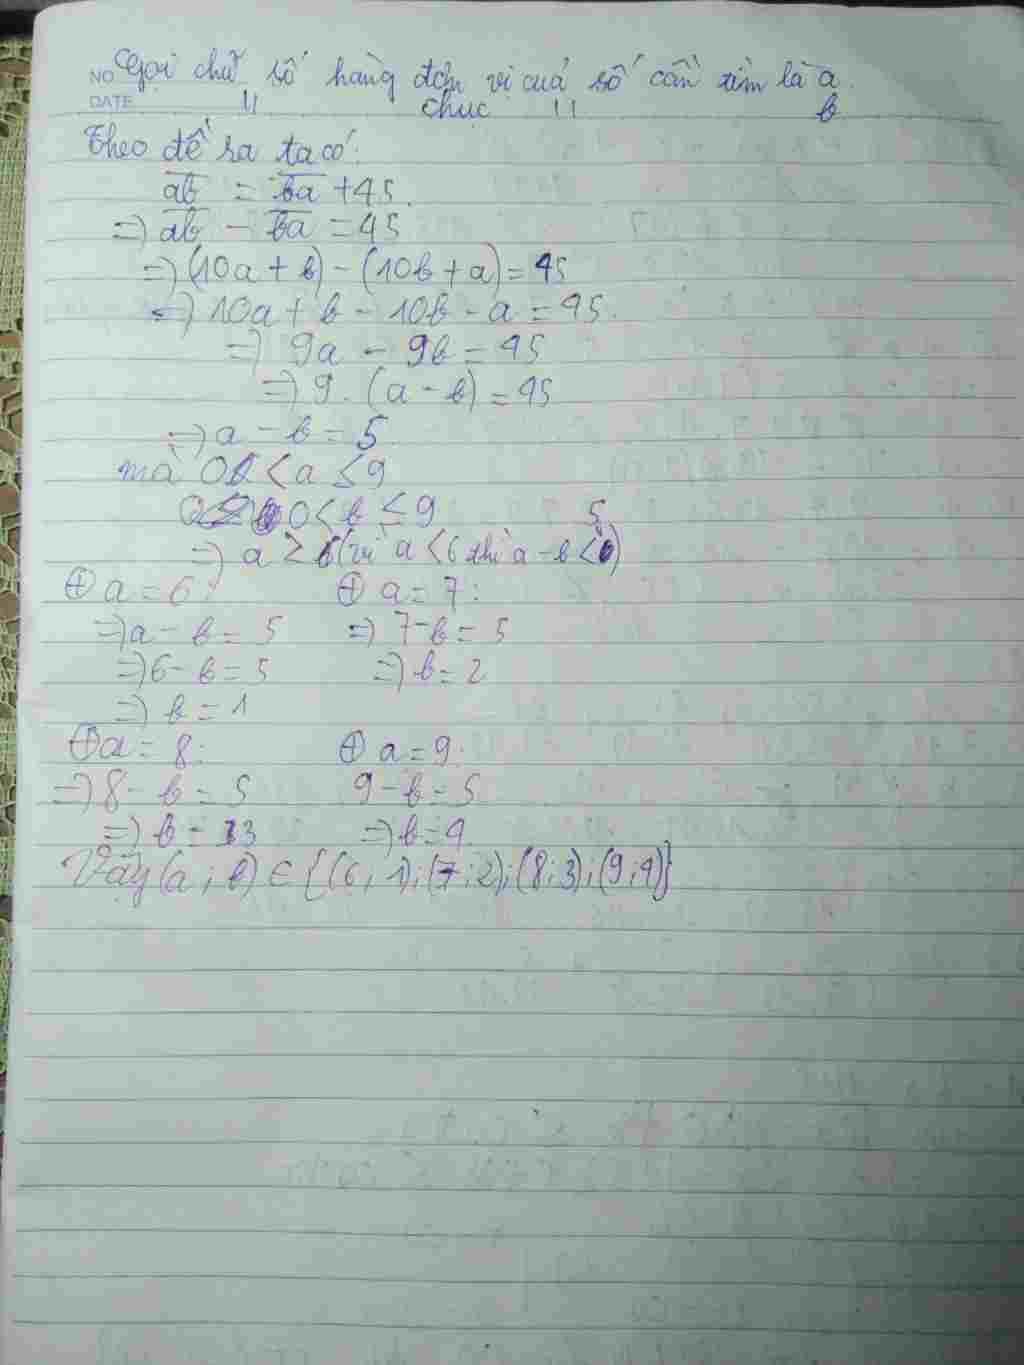 NO Gọi chữ số hàng đơn vị của số cần tìm là a.
DATE 11 chục 11 b
Theo đề ra ta có:
ab = ba + 45.
=> ab - ba = 45
=> (10a + b) - (10b + a) = 45
=> 10a + b - 10b - a = 45.
=> 9a - 9b = 45
=> 9. (a - b) = 45
=> a - b = 5.
mà 0 < a ≤ 9
0 < b ≤ 9
=> a ≥ 6 (vì a < 6 thì a - b < 5)
⊕ a = 6: ⊕ a = 7:
=> a - b = 5 => 7 - b = 5
=> 6 - b = 5 => b = 2
=> b = 1
⊕ a = 8: ⊕ a = 9:
=> 8 - b = 5 9 - b = 5
=> b = 3 => b = 4.
Vậy (a ; b) ∈ {(6 ; 1); (7 ; 2); (8 ; 3); (9 ; 4)}